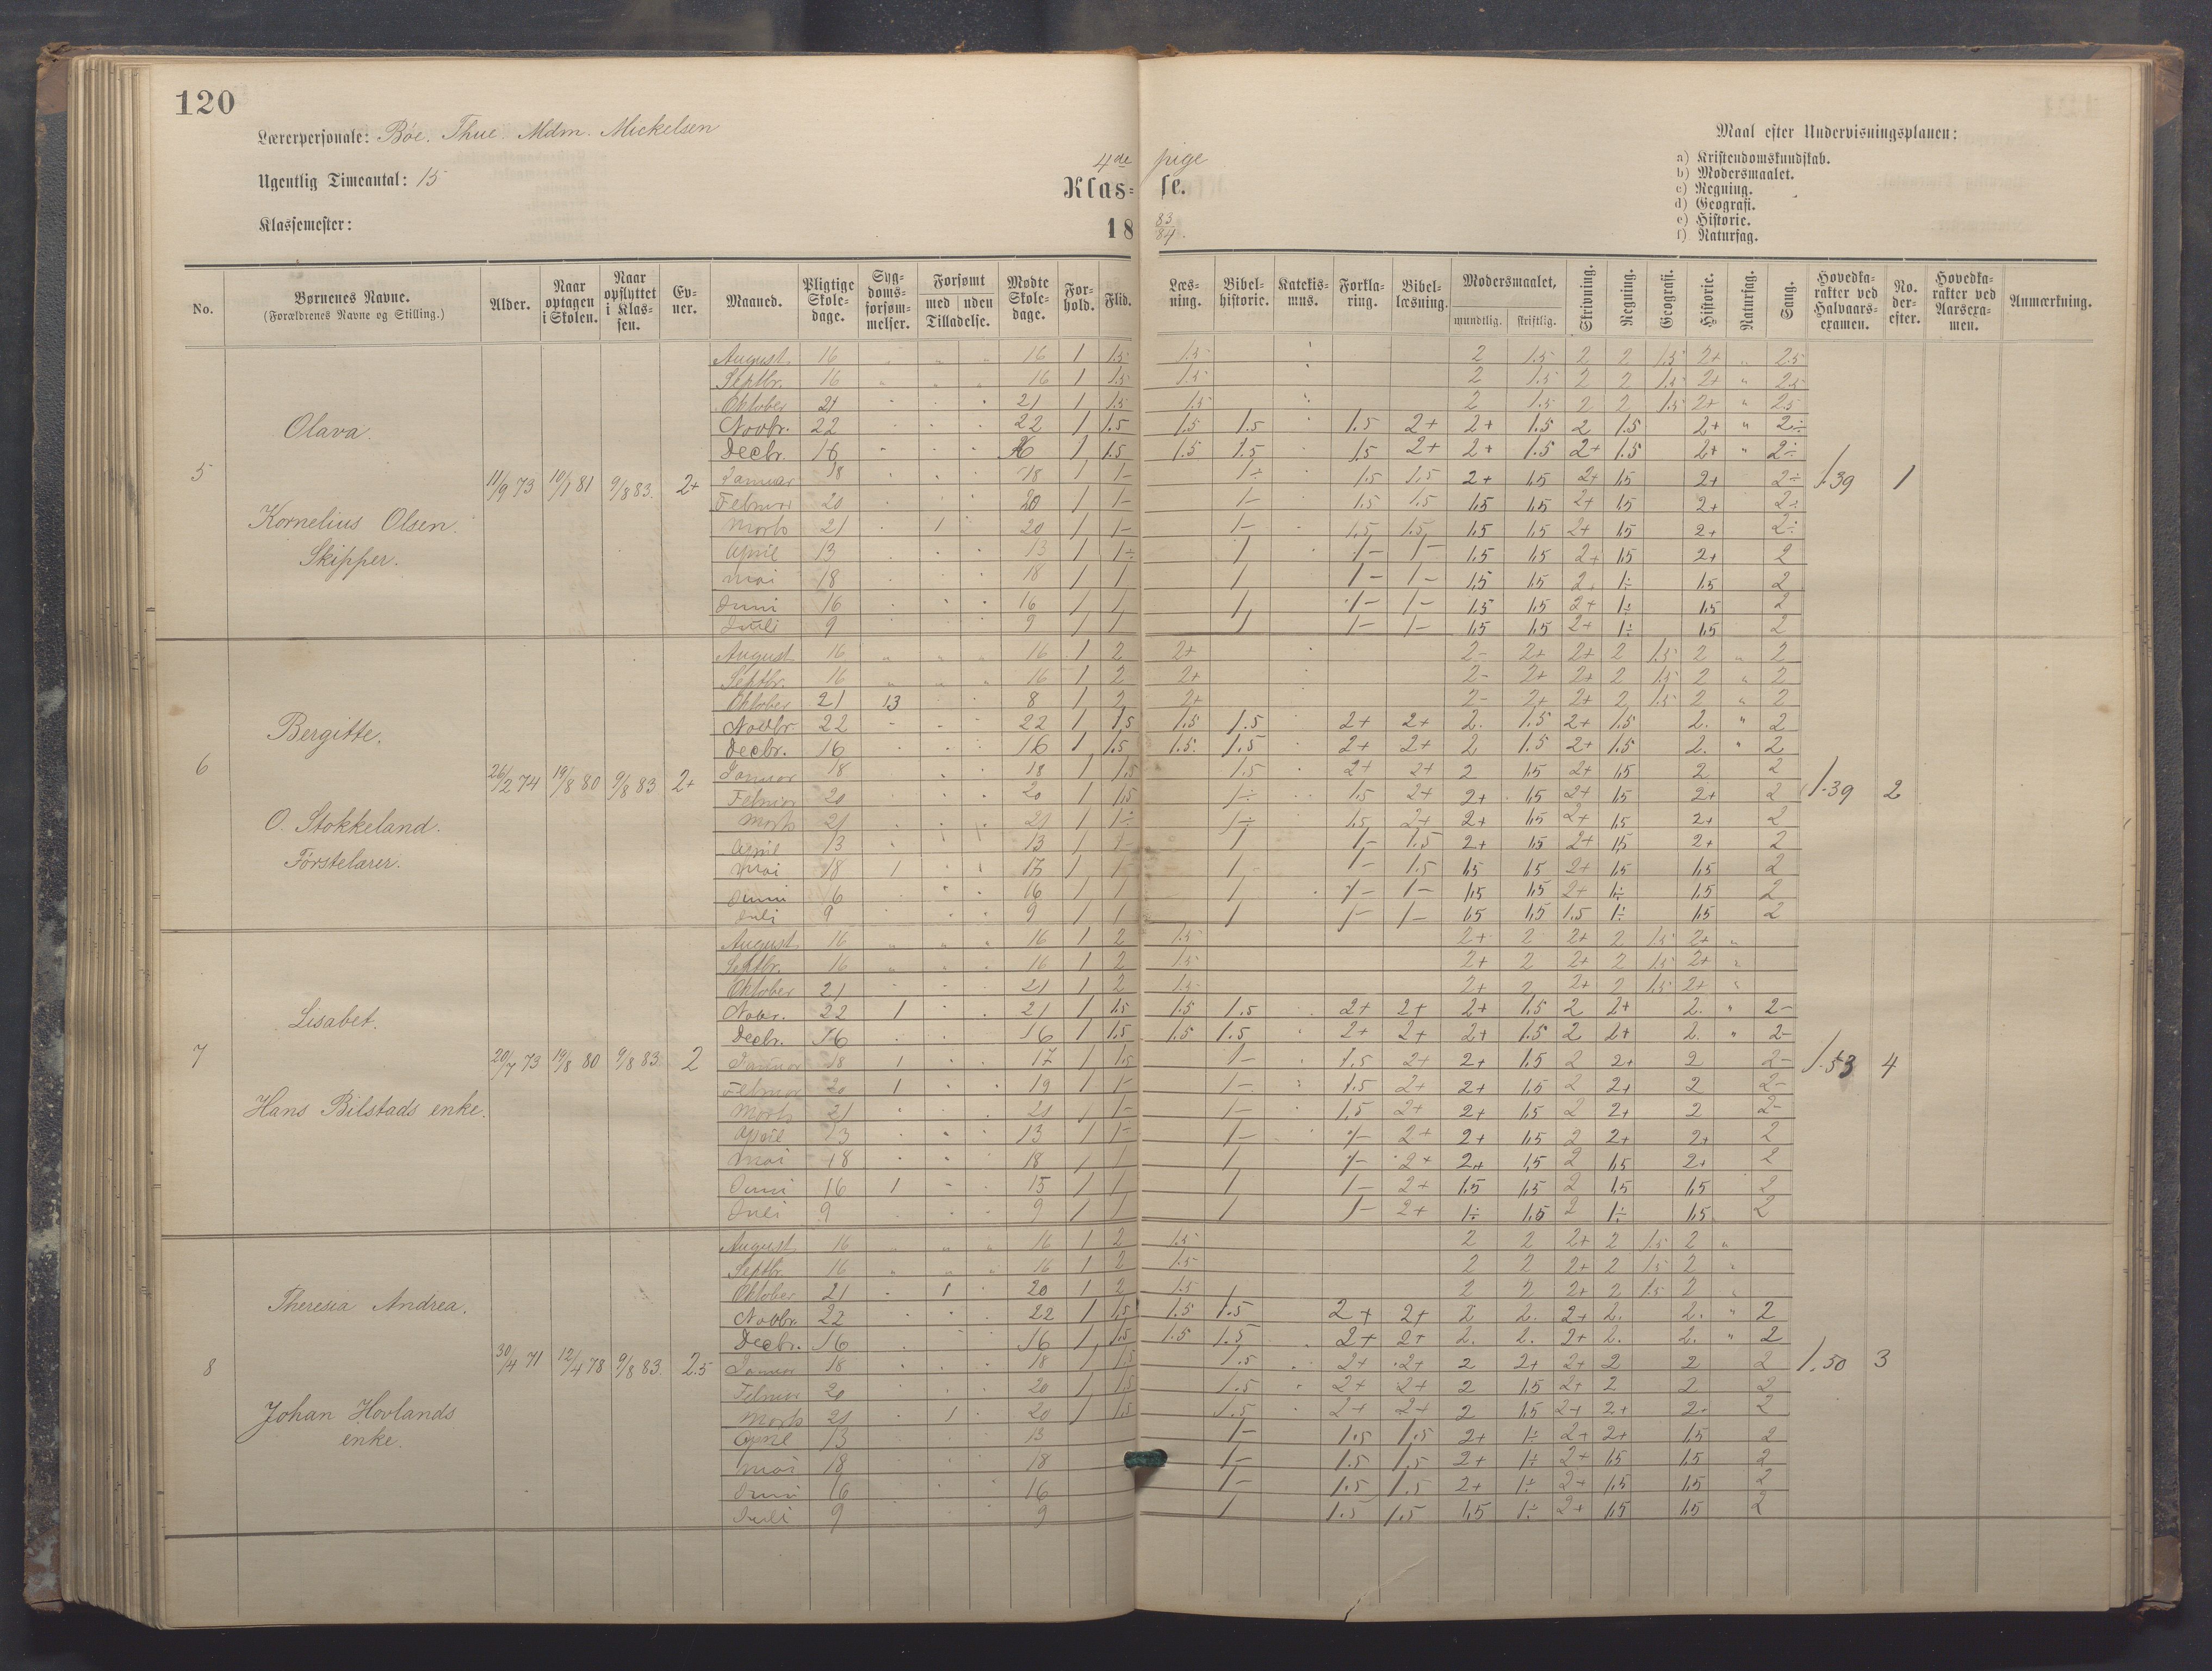 120
Lærerpersonale: Bøe. Thue. Mdm. Mickelsen
Ugentlig Timeantal: 15
Klassemester:
4de pige
Klas- se.
18 83/84.
Maal efter Undervisningsplanen:
a) Kristendomskundskab.
b) Modersmaalet.
c) Regning.
d) Geografi.
e) Historie.
f) Naturfag.
No. | Børnenes Navne. (Forældrenes Navne og Stilling.) | Alder. | Naar optagen i Skolen. | Naar opflyttet i Klassen. | Evner. | Maaned. | Pligtige Skoledage. | Sygdomsforsømmelser. | Forsømt med Tilladelse. | uden Tilladelse. | Mødte Skoledage. | Forhold. | Flid. | Læsning. | Bibelhistorie. | Katekismus. | Forklaring. | Bibellæsning. | Modersmaalet, mundtlig. | skriftlig. | Skrivning. | Regning. | Geografi. | Historie. | Naturfag. | Sang. | Hovedkarakter ved Halvaarsexamen. | No. derefter. | Hovedkarakter ved Aarsexamen. | Anmærkning.
5 Olava. Kornelius Olsen. Skipper. 11/9 73 10/1 81 9/8 83. 2+ 1.39 1
August 16 " " " 16 1 1.5 1.5 2 1.5 2 2 1.5 2+ " 2.5
Septbr. 16 " " " 16 1 1.5 1.5 2 1.5 2 2 1.5 2+ " 2.5
Oktober 21 21 1 1.5 1.5 2 1.5 2 2 1.5 2+ " 2.5
Novbr. 22 22 1 1.5 1.5 1.5 1.5 2+ 2+ 1.5 2 1.5 2+ " 2÷
Decbr. 16 16 1 1.5 1.5 1.5 1.5 2+ 2+ 1.5 2+ 1.5 2+ " 2÷
Januar 18 18 1 1- 1÷ 1.5 1.5 2+ 1.5 2+ 1.5 2+ 2÷
Februar 20 20 1 1- 1- 1.5 1.5 1.5 1.5 2+ 1.5 2+ 2÷
Marts 21 1 20 1 1- 1- 1.5 1.5 1.5 1.5 2+ 1.5 2+ 2÷
April 13 13 1 1÷ 1 1- 1- 1.5 1.5 2+ 1.5 2+ 2
Mai 18 18 1 1 1 1- 1- 1.5 1.5 2. 1÷ 1.5 2
Juni 16 16 1 1 1 1- 1- 1.5 1.5 2+ 1÷ 1.5 2
Juli 9 9 1 1 1 1- 1- 1.5 1.5 2+ 1÷ 1.5 2
6 Bergitte. O. Stokkeland. Førstelærer. 26/2 74 19/8 80 9/8 83 2+ 1.39 2
August 16 " " " 16 1 2 2+ 2- 2+ 2+ 2 1.5 2 " 2
Septbr. 16 " " " 16 1 2 2+ 2- 2+ 2+ 2 1.5 2 " 2
Oktober 21 13 8 1 2 2+ 2- 2+ 2+ 2 1.5 2 " 2
Novbr. 22 22 1 1.5 1.5 1.5 2+ 2+ 2. 1.5 2+ 1.5 2. " 2
Decbr. 16 16 1 1.5 1.5. 1.5 2+ 2+ 2 1.5 2+ 1.5 2. " 2
Januar 18 18 1 1.5 1.5 2+ 2+ 2 1.5 2+ 1.5 2 2
Februar 20 20 1 1.5 1÷ 1.5 2+ 2+ 1.5 2+ 1.5 2+ 2
Marts 21 21 1 1÷ 1÷ 1.5 2+ 2+ 1.5 2+ 1.5 2+ 2
April 13 13 1 1- 1 1- 1.5 2+ 1.5 2+ 1.5 2+ 2
Mai 18 1 17 1 1 1 1- 1.5 1.5 1.5 2+ 1.5 1.5 2
Juni 16 16 1 1 1 1- 1- 1.5 1.5 2+ 1÷ 1.5 2
Juli 9 9 1 1 1 1- 1- 1.5 1.5 1.5 1÷ 1.5 2
7 Lisabet. Hans Bilstads enke. 20/7 73 19/8 80 9/8 83 2 1.53 4
August 16 " " " 16 1 2 1.5 2+ 2 2+ 2 1.5 2+ "
Septbr. 16 " " " 16 1 2 1.5 2+ 2 2+ 2 1.5 2+ "
Oktober 21 21 1 2 1.5 2+ 2 2+ 2 1.5 2+ "
Novbr. 22 1 21 1 1.5 1.5 1.5 2+ 2+ 2+ 1.5 2 2+ 2. " 2-
Decbr. 16 16 1 1.5 1.5 1.5 2+ 2+ 2+ 1.5 2 2+ 2. " 2-
Januar 18 1 17 1 1.5 1- 1.5 2+ 2+ 1.5 2 2+ 2 2-
Februar 20 1 19 1 1- 1- 1.5 2+ 2+ 1.5 2 2+ 2 2-
Marts 21 21 1 1- 1- 1.5 2+ 2+ 1.5 2 2+ 2 2-
April 13 13 1 1- 1- 1- 2+ 2+ 1.5 2 2+ 2+ 2
Mai 18 18 1 1 1 1- 2+ 2+ 1.5 2 1.5 2+ 2
Juni 16 1 15 1 1 1 1- 2+ 1.5 1.5 2 1.5 1.5 2
Juli 9 9 1 1 1 1- 2+ 1÷ 1.5 2 1÷ 1.5 2
8 Theresia Andrea. Johan Hovlands enke. 30/4 71 12/4 78 9/8 83. 2.5 1.50 3
August 16 " " " 16 1 2 1.5 2 2 2+ 2 1.5 2 "
Septbr. 16 " " " 16 1 2 1.5 2 2 2+ 2 1.5 2 "
Oktober 21 1 20 1 2 1.5 2 2 2+ 2 1.5 2 "
Novbr. 22 22 1 1.5 1.5 1.5 2+ 2+ 2 2. 2+ 2. 2. " 2
Decbr. 16 16 1 1.5 1.5 1.5 2+ 2+ 2. 2. 2+ 2. 2. " 2
Januar 18 18 1 1.5 1.5 2+ 2+ 2 2+ 2+ 2 2 2
Februar 20 20 1 1.5 1.5 2+ 2+ 2 1.5 2+ 2 2 2
Marts 21 1 20 1 1.5 1.5 2+ 2+ 2 1.5 2+ 2+ 2- 2
April 13 13 1- 1.5 1.5 2+ 1÷ 2+ 2+ 1.5 2
Mai 18 18 1- 1.5 1.5 2+ 1÷ 2+ 1.5 1.5 2
Juni 16 16 1- 1.5 1.5 2+ 1÷ 2+ 1.5 1.5 2
Juli 9 9 1 1.5 1.5 1.5 1÷ 2+ 1.5 1.5 2